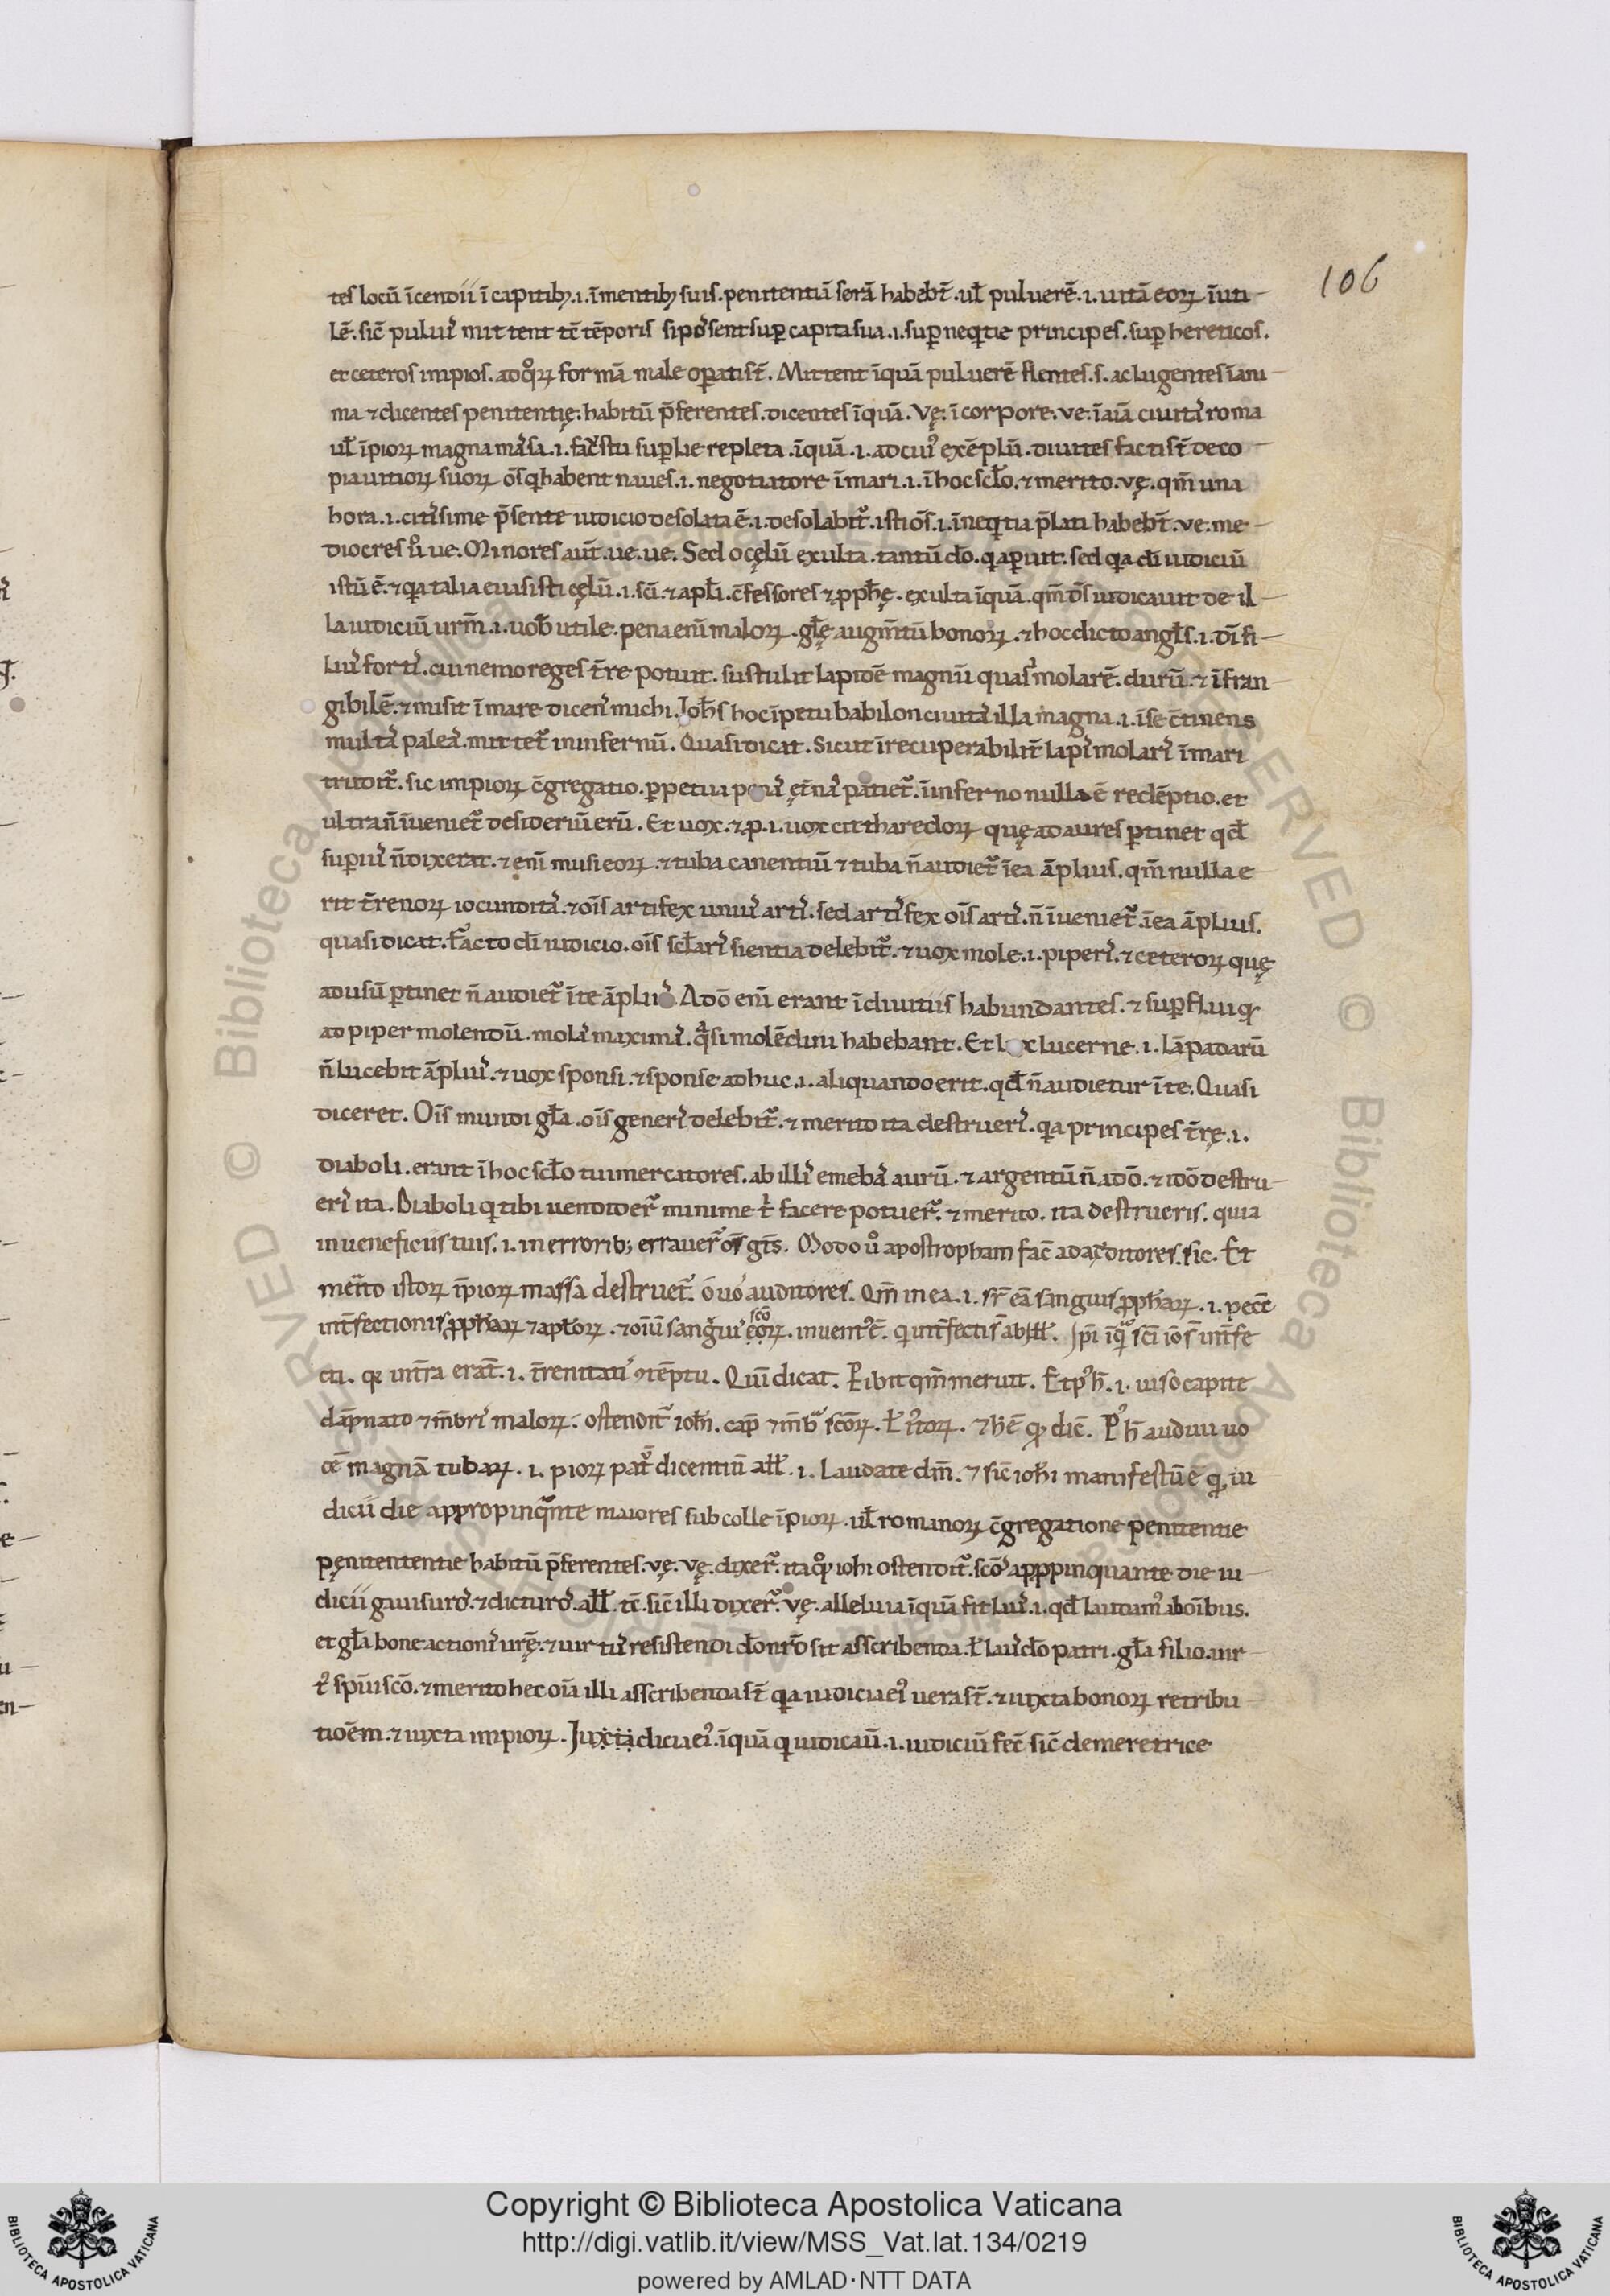 106
tes locū īcendii ī capitibꝫ .i. ī mentibꝫ suis. penitentiā serā habebt̄. ul̄ puluerē .i. uitā eoꝝ īuti
lē. sic̄ puluȝ mittent tc̄ tēporis si pōsent suꝑ capita sua .i. suꝑ neqitie principes. suꝑ hereticos.
et ceteros impios. ad qͦꝝ formā male oꝑati st̄. Mittent īquā puluerē flentes .s. ac lugentes ī ani
ma ⁊ dicentes penitentię. habitū p̄ferentes. dicentes īquā. Vę. ī corpore. ve. ī aīa ciuitaˢ roma
ul̄ īpioꝝ magna maˢsa .i. faˢstu suꝑbie repleta. īquā .i. ad cuiꝰ exēplū. diuites facti st̄ de co
pia uitioꝝ suoꝝ ōs qi habent naues .i. negotiatore ī mari .i. ī hoc scl̄o. ⁊ merito. vę. qm̄ una
hora .i. citiˢsime p̄sente iudicio desolata ē .i. desolabit᷑. isti ōs .i. ī neqitia p̄lati habebt̄. ve. me
diocres u̇ ue. Minores aut̄. ue. ue. Sed o cęlū exulta. tantū do. qi aꝑuit. sed qa di iudiciū
istū ē. ⁊ qa talia euasisti cęlū .i. sc̄i. ⁊ apl̄i. c̄fessores ⁊ ꝓph̄ę. exulta īquā. qm̄ ds̄ iudicauit de il
la iudiciū urm̄ .i. uob̄ utile. pena enī maloꝝ. gl̄ę augm̄tū bonoꝝ. ⁊ hoc dicto angl̄s .i. dī fi
liuˢ fortiˢ. cui nemo reges t̄re potuit. sustulit lapidē magnū quaˢi molarē. durū. ⁊ īfran
gibilē. ⁊ misit ī mare dicenˢ michi. Joh̄s hoc īpetu babilon ciuitaˢ illa magna .i. ī se c̄tinens
multaˢ paleaˢ. mittet᷑ in infernū. Quasi dicat. Sicut īrecuperabilit̄ lapiˢ molariˢ ī mari
trudit᷑. sic impioꝝ c̄gregatio. ꝑpetua penaˢ ęt̄naˢ patiet᷑. ī inferno nulla ē redēptio. et
ultra n̄ īueniet᷑ desideriū erū. Et uox. ⁊ p̄ .i. uox citharedoꝝ quę ad aures ꝑtinet qd̄
suꝑiuˢ n̄ dixerat. ⁊ enī musi eoꝝ. ⁊ tuba canentiū ⁊ tuba n̄ audiet᷑ ī ea āplius. qm̄ nulla e
rit t̄renoꝝ iocunditaˢ. ⁊ oīs artifex uniuˢ artiˢ. sed artifex oīs artiˢ. n̄ īueniet᷑. ī ea āplius.
quasi dicat. facto di iudicio. oīs scl̄ariˢ sientia delebit᷑. ⁊ uox mole .i. piperiˢ. ⁊ ceteroꝝ quę
ad usū ꝑtinet n̄ audiet᷑ ī te āpliuˢ. Adō enī erant ī diuitiis habundantes. ⁊ suꝑflui qͥ
ad piper molendū. molaˢ maximaˢ. qͣsi molēdini habebant. Et lux lucerne .i. lāpadarū
n̄ lucebit āpliuˢ. ⁊ uox sponsi. ⁊ sponse adhuc .i. aliquando erit. qd̄ n̄ audietur ī te. Quasi
diceret. Oīs mundi gl̄a. oīs generiˢ delebit᷑. ⁊ merito ita destrueriˢ. qa principes t̄rę .i.
diaboli. erant ī hoc scl̄o tui mercatores. ab illiˢ emebaˢ aurū. ⁊ argentū n̄ adō. ⁊ idō destru
eriˢ ita. Diaboli qi tibi uendider᷑ minime t̄ facere potuer᷑. ⁊ merito. ita destrueris. quia
in ueneficiis tuis .i. in erroribꝫ errauer᷑ ōs gt̄s. Modo u̇ apostropham fac̄ ad aęditores. sic. Et
merito istoꝝ īpioꝝ massa destruet᷑. o uo auditores. Qm̄ in ea .i. ꝑ eā sanguis ꝓph̄aꝝ .i. pecc̄
int̄fectionis ꝓph̄aꝝ ⁊ aptoꝝ. ⁊ oīū sanguiˢ eoꝝ scō. inuentꝰ ē. qi int̄fecti st̄ ab ill̄. Ip̄i īqͣ sc̄i iō st̄ int̄fe
cti. qͥ int̄ra erāt .i. t̄renitatiˢ ꝯtēptu. Qui dicat. Pibit qm̄ meruit. Et pꝰ h̄ .i. uiso capite
dāpnato ⁊ m̄briˢ maloꝝ. ostendit᷑ ioh̄i. cap̄ ⁊ m̄bͣ scōꝝ. l̄ iˢtoꝝ. ⁊ h̄ ē qͥ dic̄. Pꝰ h̄ audiui uo
cē magnā tubaꝝ .i. pioꝝ pat᷑ dicentiū all̄ .i. Laudate dm̄. ⁊ sic̄ ioh̄i manifestū e qͥ iu
dicii die appropinqͣnte maiores sub colle īpioꝝ. ul̄ romanoꝝ c̄gregatione penitentie
pęnitententie habitū p̄ferentes. vę. vę. dixer᷑. itaqͥ iohi ostendit᷑. scōˢ apppinquante die iu
dicii gauisuroˢ. ⁊ dicturoˢ. all̄. tc̄. sic̄ illi dixer᷑. vę. alleluia īquā fit lauˢ .i. qd̄ laudamꝰ ab oībus.
et gl̄a bone actioniˢ urę. ⁊ uirtuˢ resistendi do nr̄o sit asscribenda. l̄ lauˢ do patri. gl̄a filio. uir
tꝰ spiūi scō. ⁊ merito hec oīa illi asscribenda st̄ qa iudicia eiꝰ uera st̄. ⁊ iuxta bonoꝝ retribu
tioēm. ⁊ iuxta impioꝝ. Juxta dicia eiꝰ. īquā qi iudicaū .i. iudiciū fec̄ sic̄ de meretrice
Copyright © Biblioteca Apostolica Vaticana
http://digi.vatlib.it/view/MSS_Vat.lat.134/0219
powered by AMLAD·NTT DATA